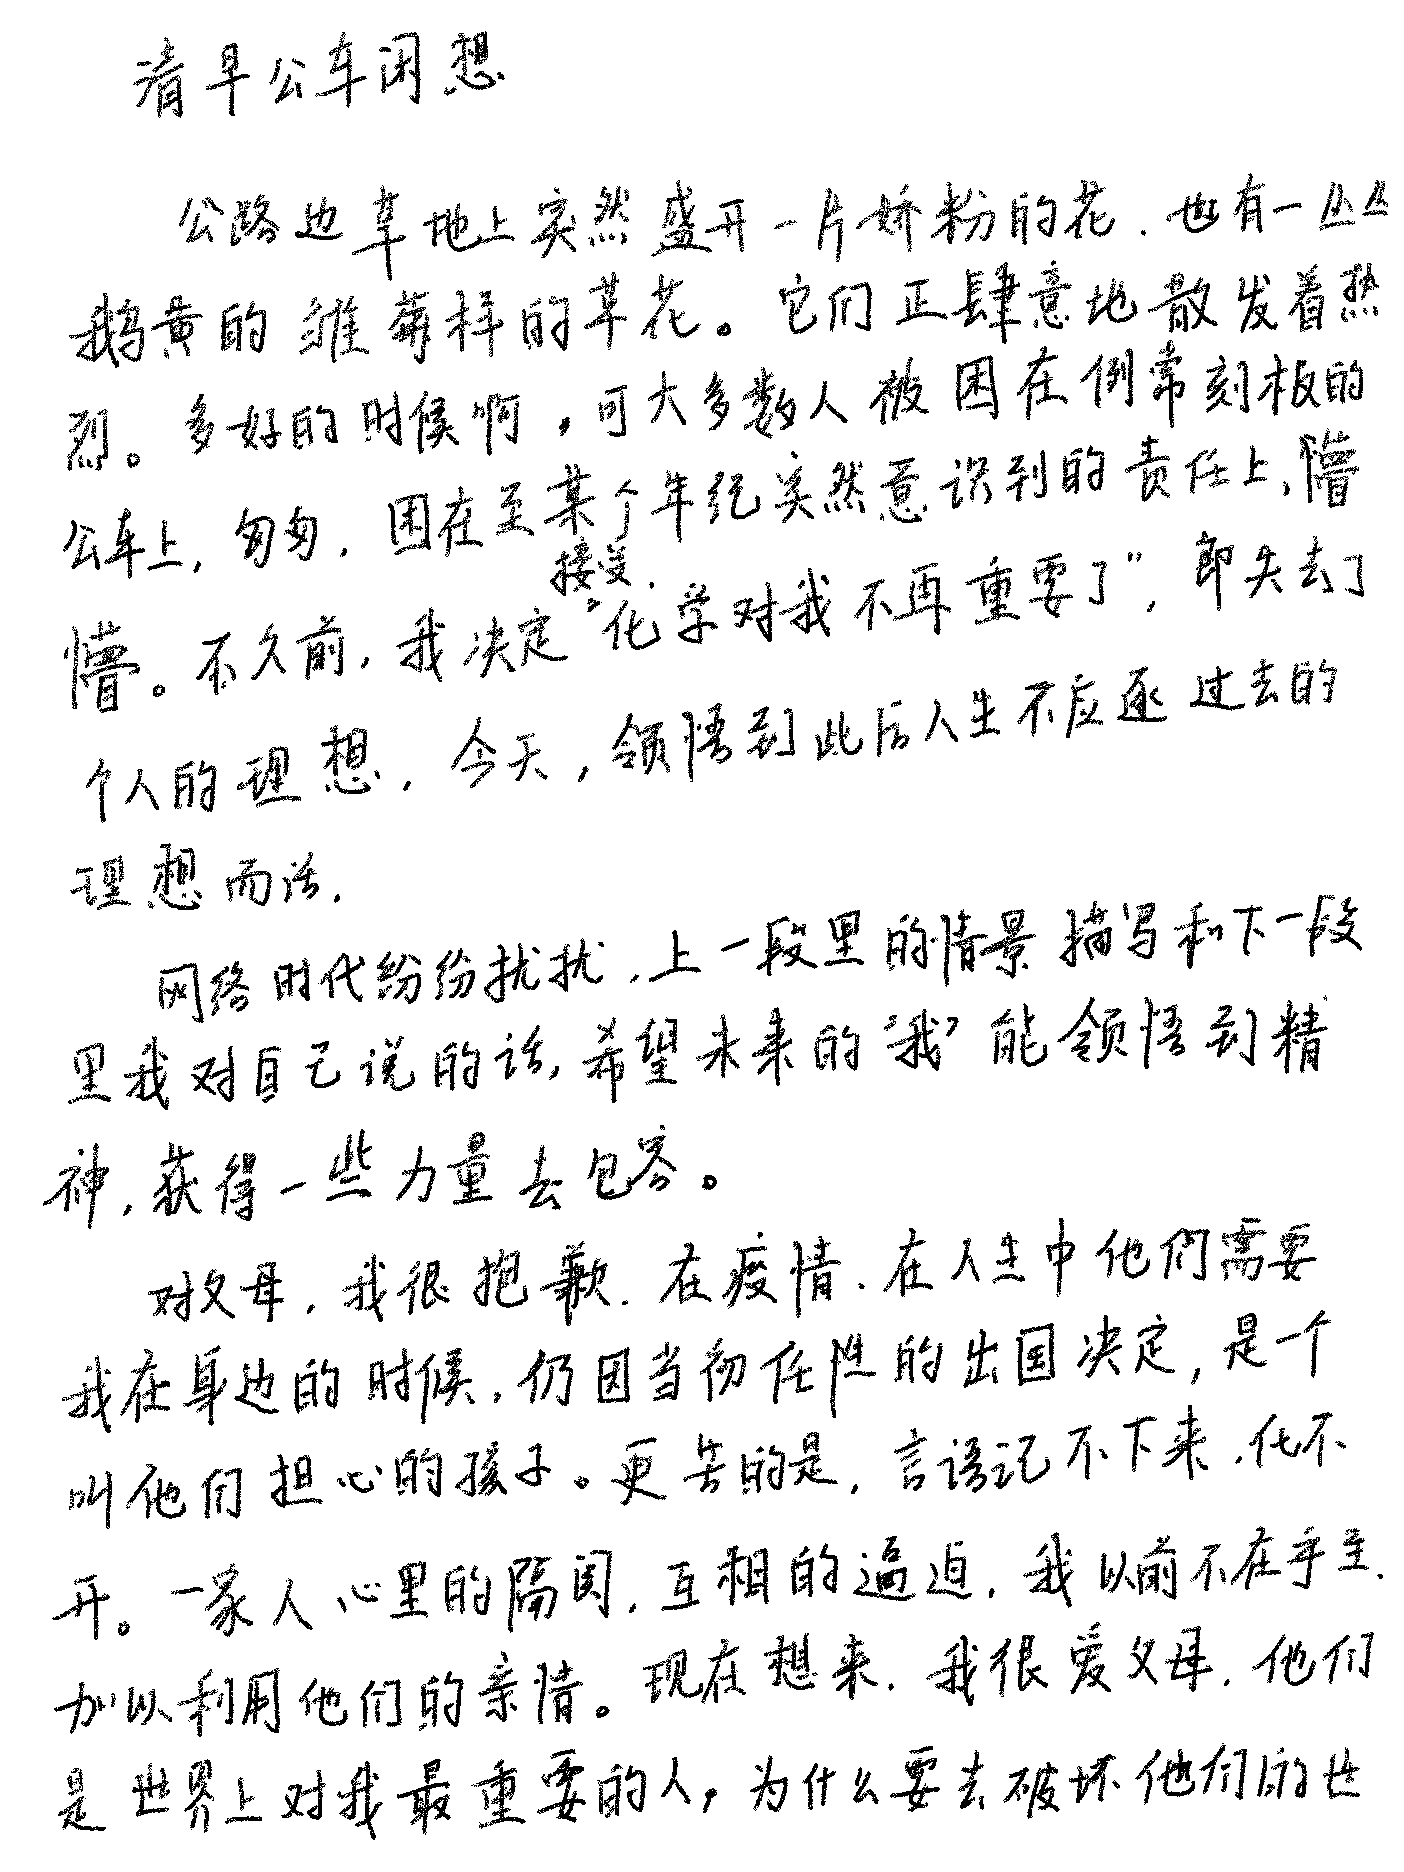 清早公车闲想
公路边草地上突然盛开一片娇粉的花、也有一丛丛
鹅黄的雏菊样的草花。它们正肆意地散发着热
烈。多好的时候啊，可大多数人被困在例常刻板的
公车上，匆匆，困在至某个年纪突然意识到的责任上，懵
懵。不久前，我决定接受“化学对我不再重要了”，即失去了
个人的理想，今天，领悟到此后人生不应逐过去的
理想而活.
网络时代纷纷扰扰，上一段里的情景描写和下一段
里我对自己说的话，希望未来的‘我’能领悟到精
神，获得一些力量去包容。
对父母，我很抱歉．在疫情、在人生中他們需要
我在身边的时候，仍因当初任性的出国决定，是一个
叫他们担心的孩子。更苦的是，言语记不下来，化不
开。一家人心里的隔阂，互相的逼迫，我以前不在乎至，
加以利用他们的亲情。现在想来，我很爱父母，他们
是世界上对我最重要的人，为什么要去破坏他们的世